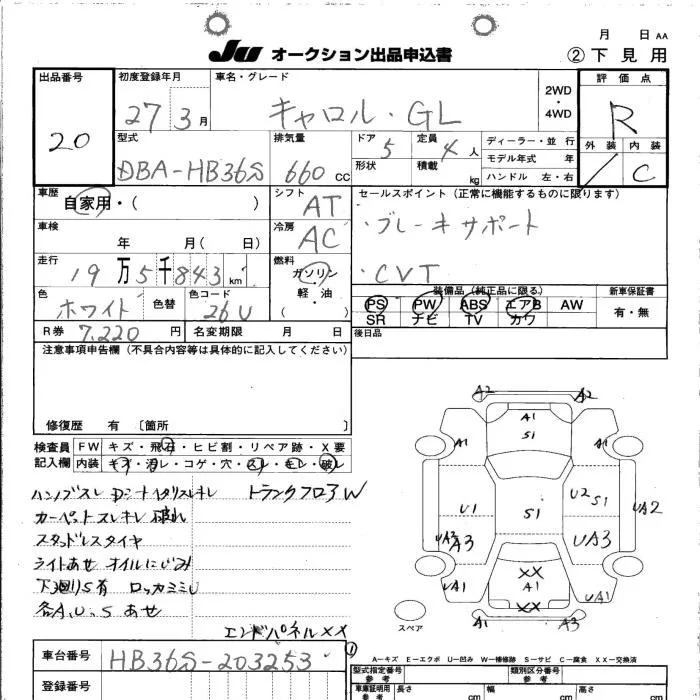 月 日 AA
JU オークション出品申込書 ②下見用
出品番号 初度登録年月 車名・グレード 評価点
20 27 3月 キャロル・GL 2WD・4WD R
型式 排気量 ドア 定員 ディーラー・並行 外装 内装
DBA-HB36S 660 CC 5 4人 モデル年式 年 C
形状 積載 kg ハンドル 左・右
車歴 シフト セールスポイント(正常に機能するものに限ります)
自家用・( ) AT
車検 冷房 ・ブレーキサポート
年 月( 日) AC
走行 燃料 ・CVT
19万5千843km ガソリン・軽・油( )
装備品(純正品に限る) 新車保証書
色 色替 色コード PS PW ABS エアB AW 有・無
ホワイト 26U SR ナビ TV カワ
R券 7,220円 名変期限 月 日 後日品
注意事項申告欄(不具合内容等は具体的に記入してください)
修復歴 有 〔箇所 〕
検査員 FW キズ・飛石・ヒビ割・リペア跡・X要
記入欄 内装 キズ・汚レ・コゲ・穴・スレ・キレ・破レ
トランクフロアW
カーペットスレキレ 破れ
スタッドレスタイヤ
ライトあせ オイルにじみ
下廻りS有
各A、U、Sあせ
エンドパネルXX
A2 A2
A1
S1
A1 A1
U1 S1 U2 S1 UA2
UA3 A3 UA3
XX
UA1 A1 UA1
XX
スペア A1 A3
車台番号 HB36S-203253 ①
A-キズ E-エクボ U-凹み W-補修跡 S-サビ C-腐食 XX-交換済
登録番号 型式指定番号 参考 類別区分番号 参考
車庫証明用 参考 長さ cm 幅 cm 高さ cm